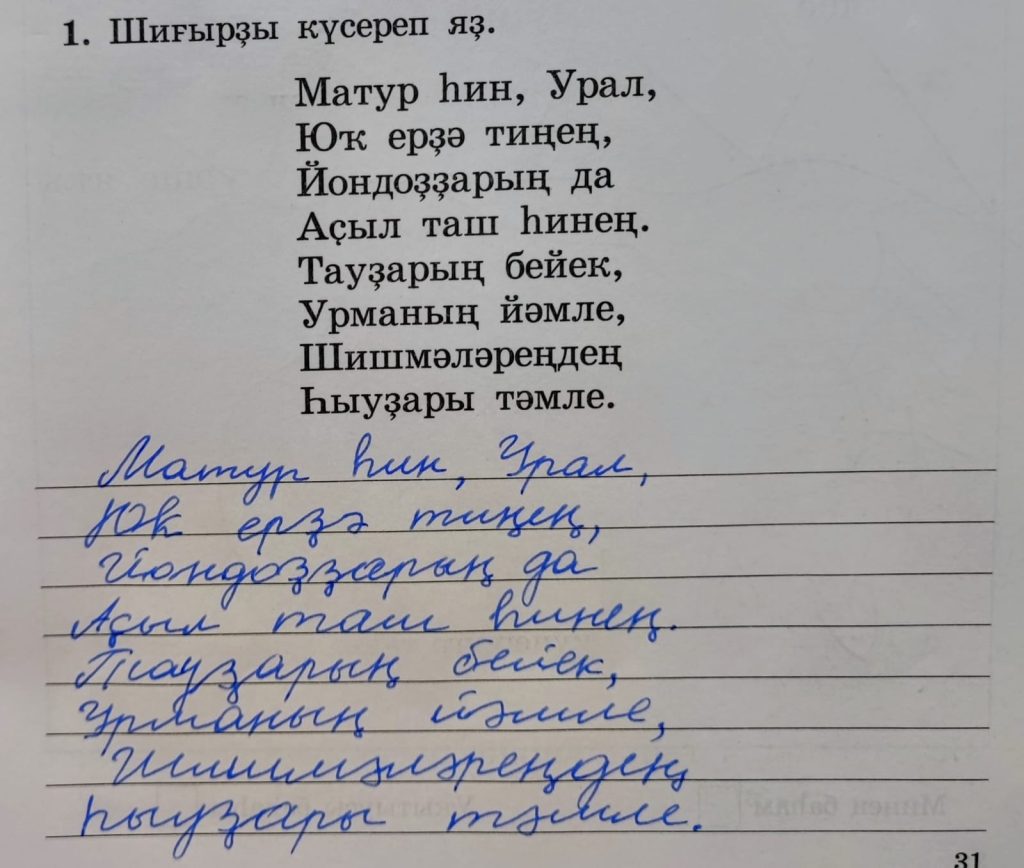 1. Шиғырҙы күсереп яҙ.
Матур һин, Урал,
Юҡ ерҙә тиңең,
Йондоҙҙарың да
Аҫыл таш һинең.
Тауҙарың бейек,
Урманың йәмле,
Шишмәләреңдең
Һыуҙары тәмле.
Матур һин, Урал,
Юҡ ерҙә тиңең,
Йондоҙҙарың да
Аҫыл таш һинең.
Тауҙарың бейек,
Урманың йәмле,
Шишмәләреңдең
Һыуҙары тәмле.
31